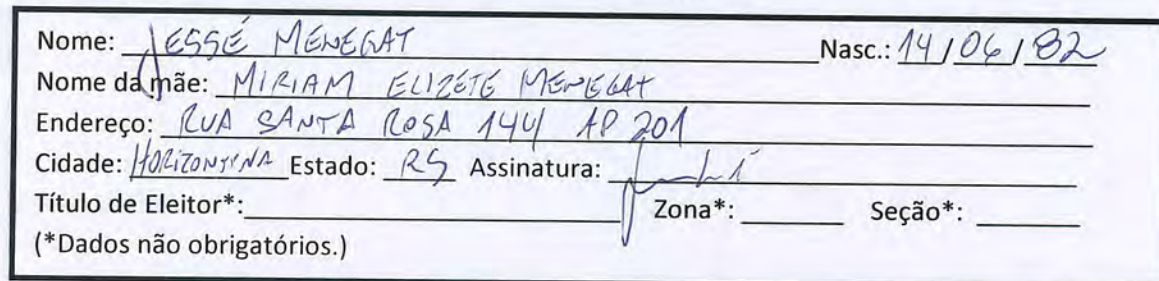 Nome: JESSÉ MENEGAT Nasc.: 14/06/82
Nome da mãe: MIRIAM ELIZETE MENEGAT
Endereço: RUA SANTA ROSA 144/ AP 201
Cidade: HORIZONTINA Estado: RS Assinatura:
Título de Eleitor*: Zona*: Seção*:
(*Dados não obrigatórios.)